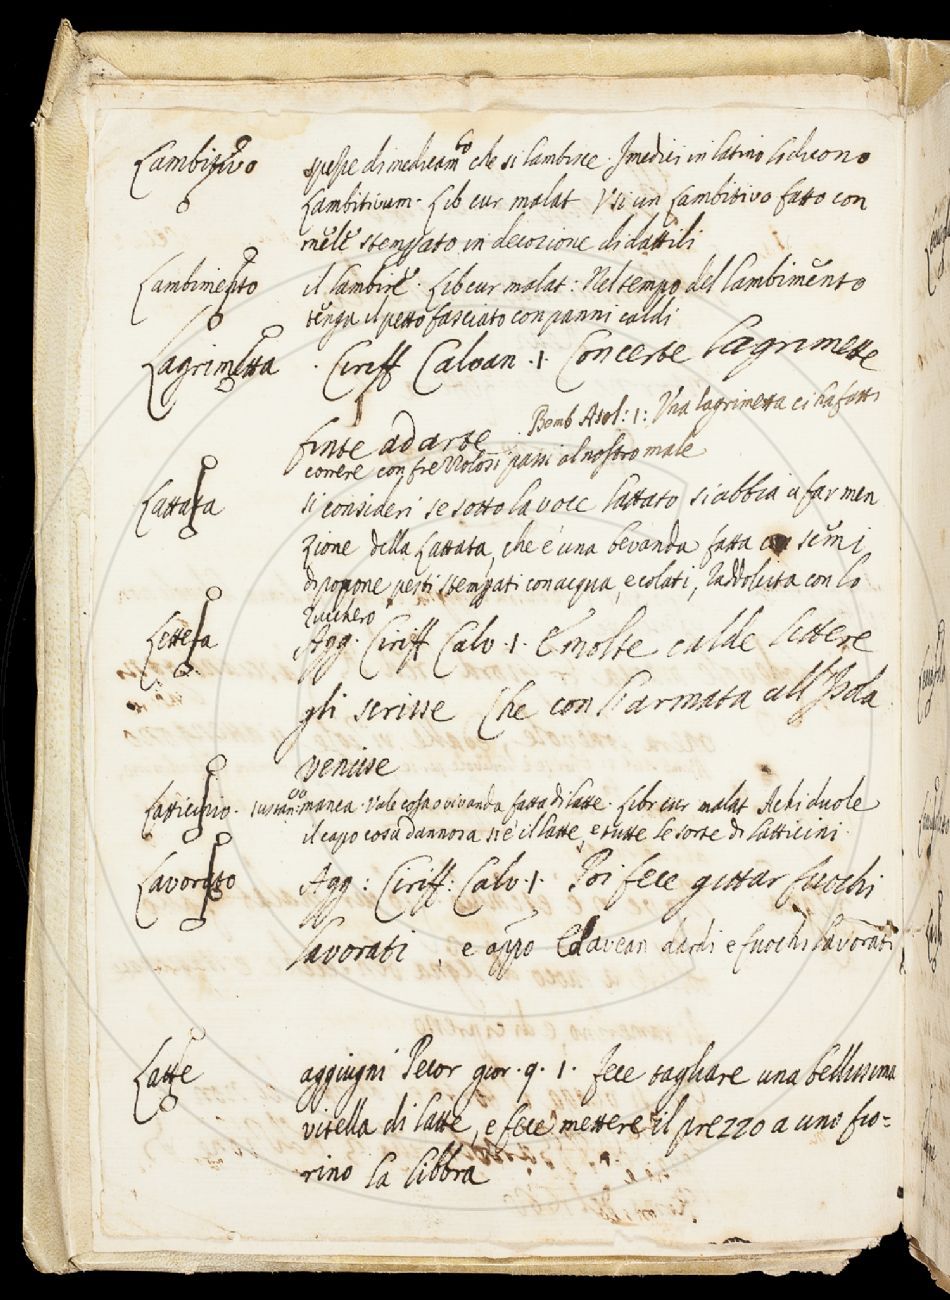 Lambitivo spezie di medicam.to che si lambisce. I medici in latino lo dicono
Lambitivum. Lib cur malat Usi un lambitivo fatto con
mele stemperato in decozione di dattili
Lambimento il lambire. Lib cur malat: Nel tempo del lambimento
tenga il petto fasciato con panni caldi
Lagrimetta . Ciriff Calvan . 1. Con certe lagrimette
finte ad arte Bemb Asol: 1: Una lagrimetta ci ha fatti
correre con frettolosi passi al nostro male
Lattata si consideri se sotto la voce lattato si abbia a far men
zione della Lattata, che è una bevanda fatta con semi
di popone pesti stemperati con acqua, e colati, raddolcita con lo
zucchero
Lettera Agg. Ciriff Calv. 1. E molte calde lettere
gli scrisse Che con l'armata all'Isola
venisse
Latticinio. sustan: manca. Vale cosa o vivanda fatta di latte. Libr cur malat A chi duole
il capo cosa dannosa si è il latte, e tutte le sorte di latticini.
Lavorato Agg: Ciriff: Calv. 1. Poi fece gittar fuochi
lavorati, e appo avean dardi e fuochi lavorati
Latte aggiugni Pecor gior. 9. 1. Fece tagliare una bellissima
vitella di latte, e fece mettere il prezzo a uno fio=
rino la libbra